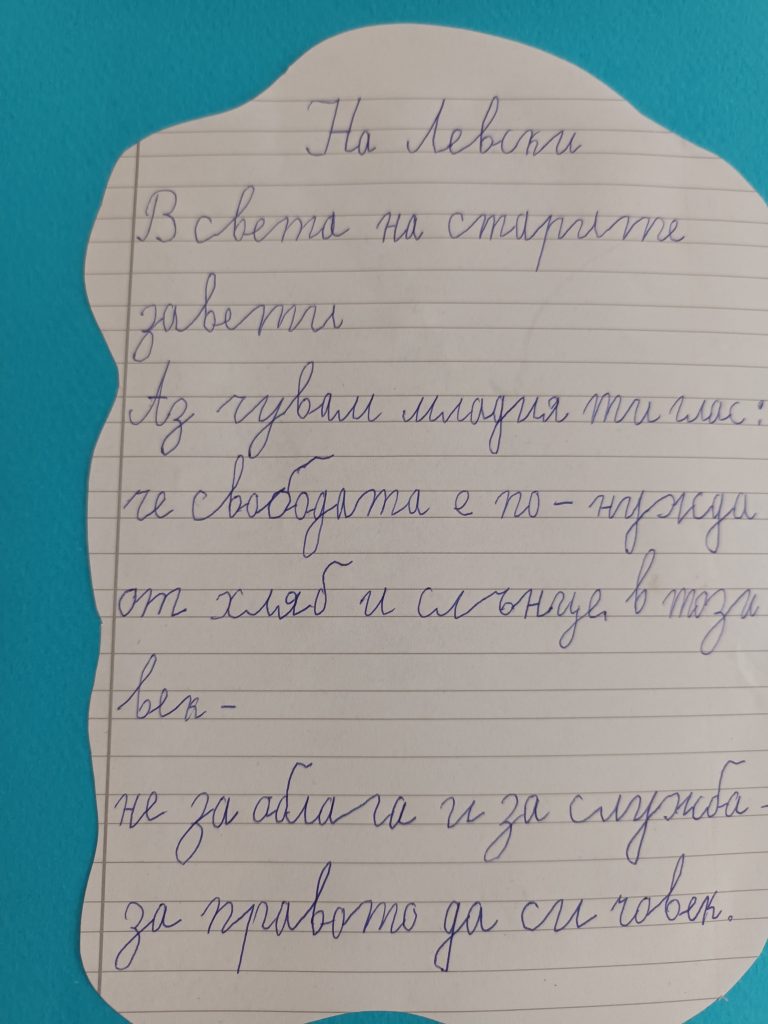 На Левски
В света на старите
завети
Аз чувам младия ти глас:
че свободата е по-нужда
от хляб и слънце в този
век-
не за облага и за служба-
за правото да си човек.